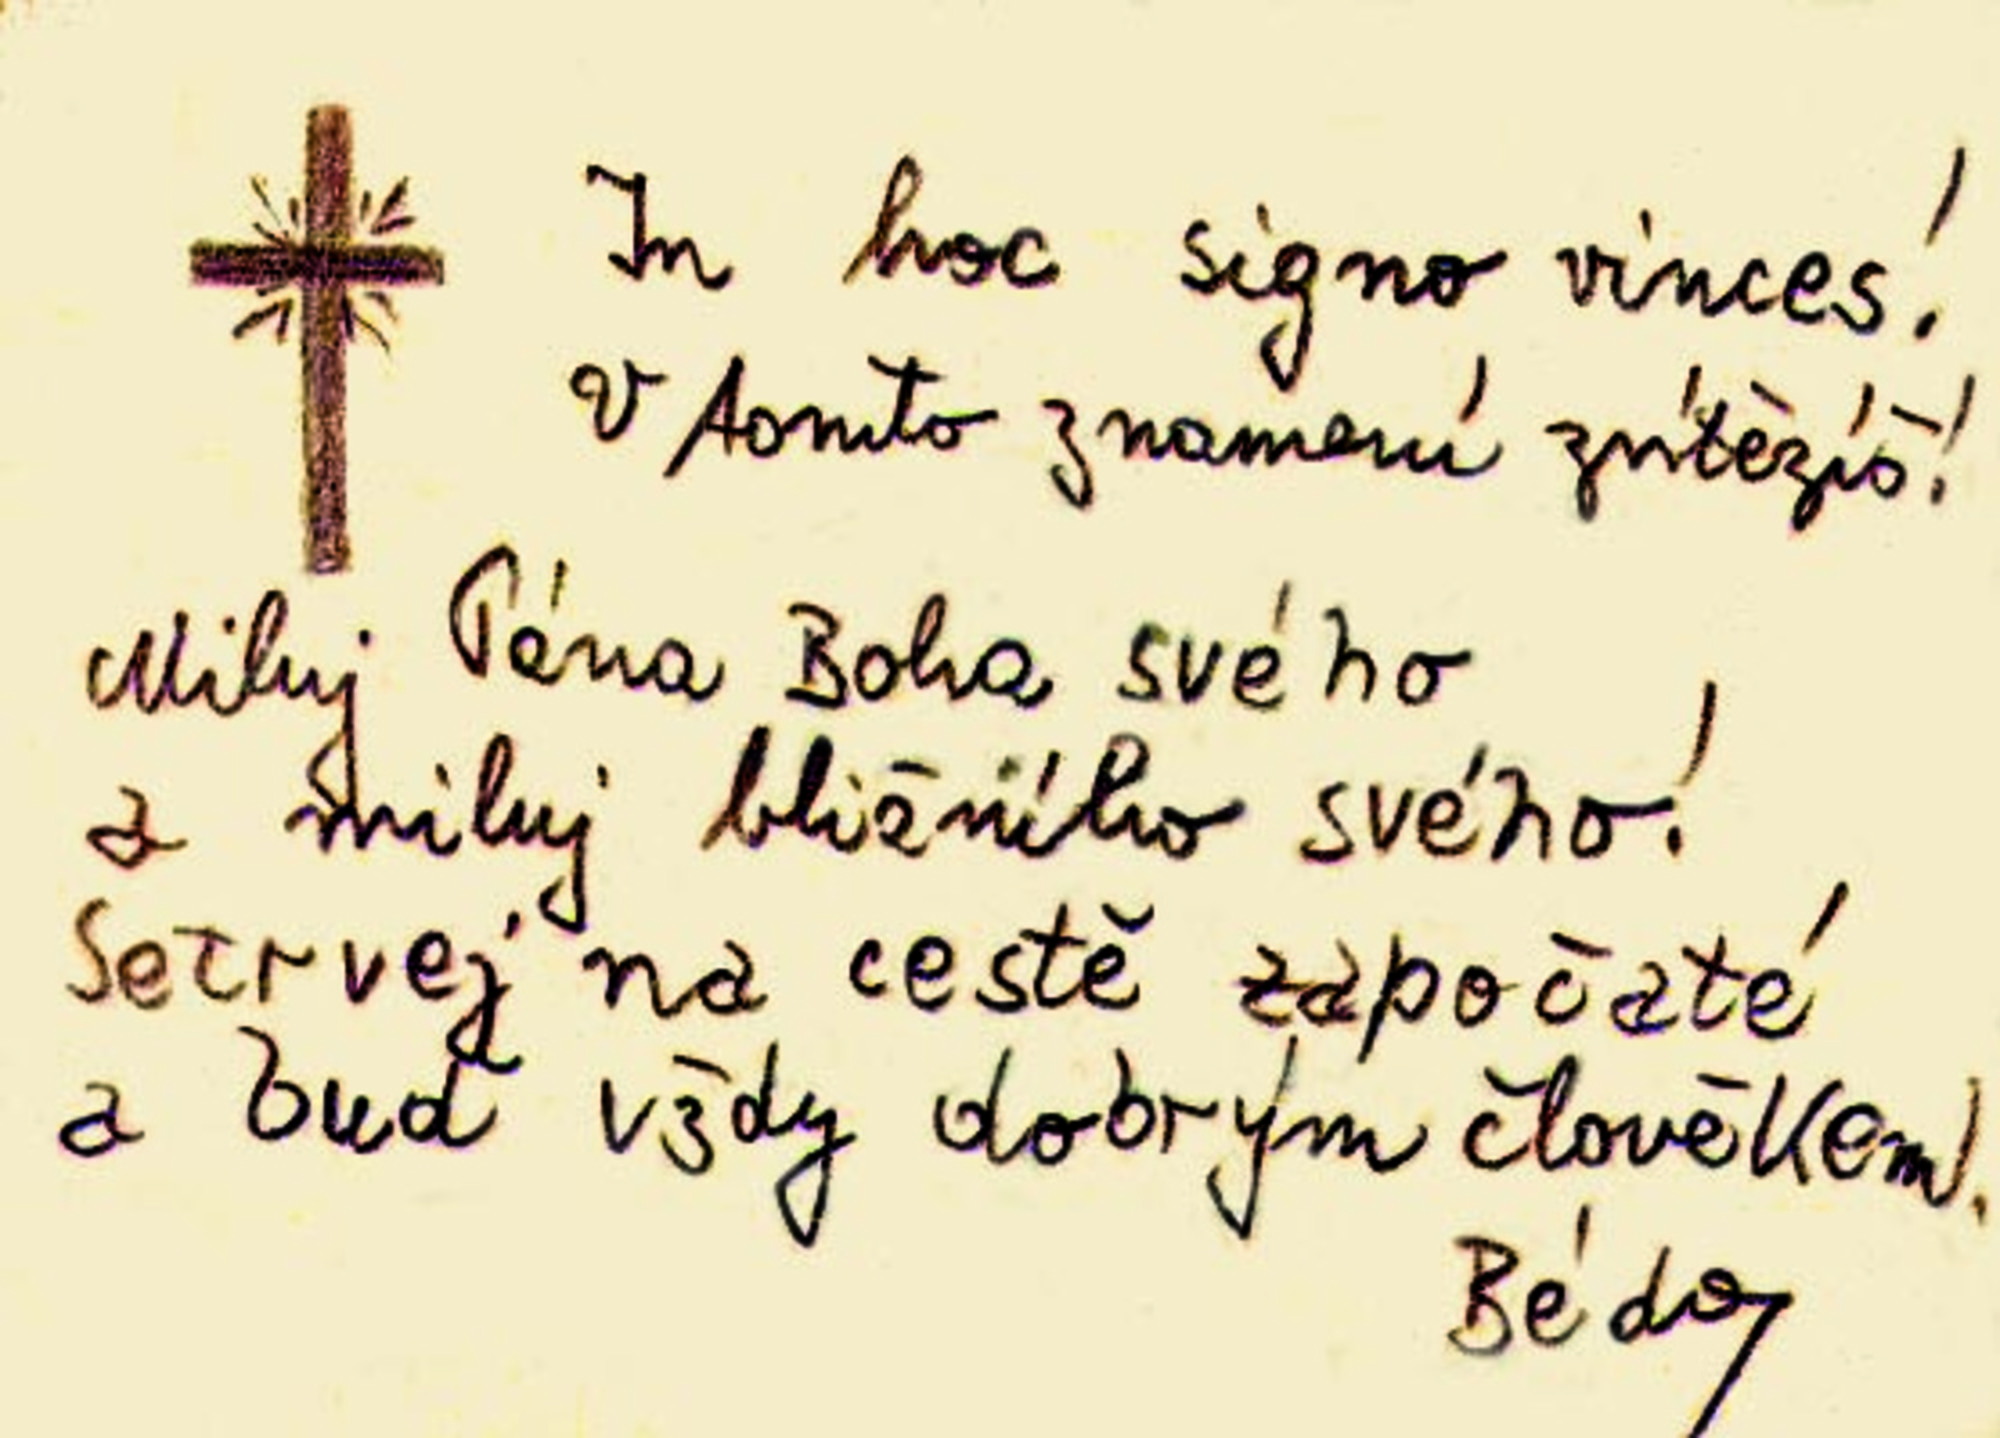 In hoc signo vinces!
V tomto znamení zvítězíš!
Miluj Pána Boha svého
a miluj bližního svého!
Setrvej na cestě započaté
a bud vždy dobrým člověkem!
Béda